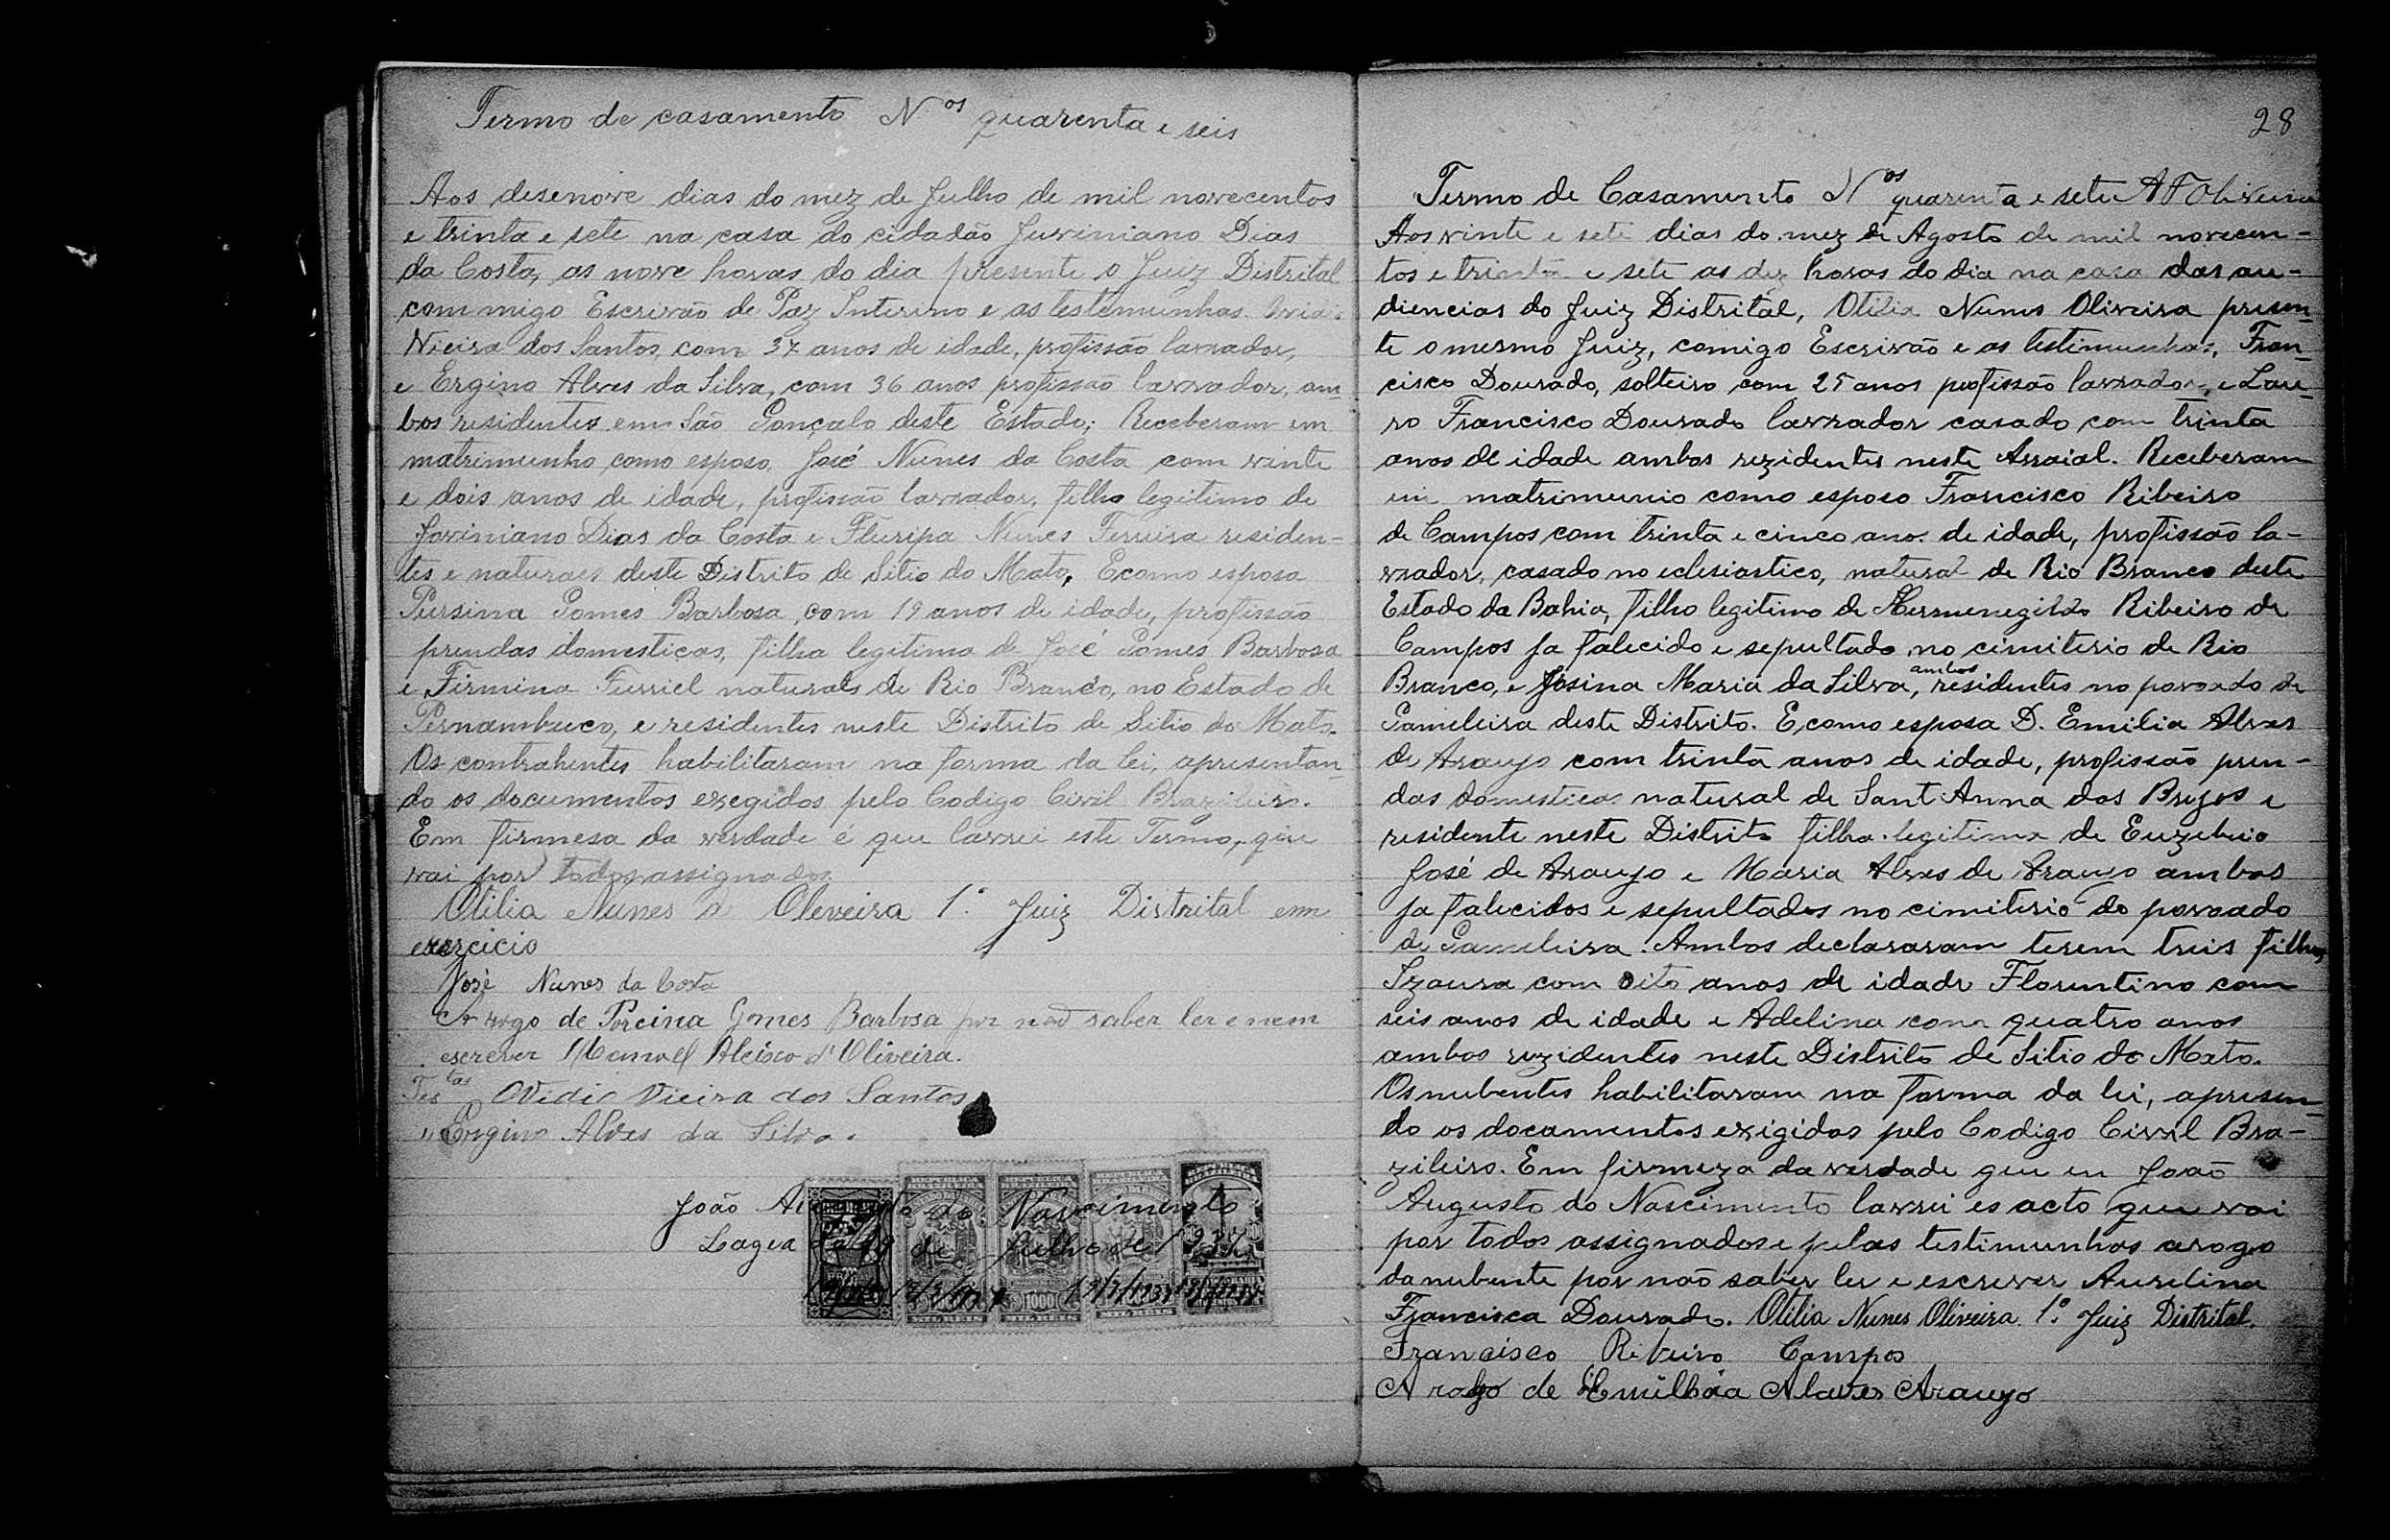 Termo de casamento Nos quarenta e seis
Aos desenove dias do mez de Julho de mil novecentos
e trinta e sete na casa do cidadão Juviniano Dias
da Costa, as nove horas do dia presente o Juiz Distrital
commigo Escrivão de Paz Interino e as testemunhas Ovidio
Vieira dos Santos, com 37 anos de idade, profissão lavrador,
e Ergino Alves da Silva, com 36 anos profissão lavrador, am-
bos residentes em São Gonçalo deste Estado; Receberam em
matrimunho como esposo, José Nunes da Costa com vinte
e dois anos de idade, profissão lavrador, filho legitimo de
Joviniano Dias da Costa e Fluripa Nunes Ferreira residen-
tes e naturaes deste Distrito de Sitio do Mato, E como esposa
Pursina Gomes Barbosa, com 19 anos de idade, profissão
prendas domesticas, filha legitima de José Gomes Barbosa
e Firmina Furriel naturals de Rio Branco, no Estado de
Pernambuco, e residentes neste Distrito de Sitio do Mato.
Os contrahentes habilitaram na forma da lei, apresentan-
do os documentos exegidos pelo Codigo Civil Brazileiro.
Em firmesa da verdade é que lavrei este Termo, que
vai por todos assignados.
Otilia Nunes de Oleveira 1.º Juiz Distrital em
exercicio
José Nunes da Costa
A rogo de Porcina Gomes Barbosa por não saber ler e nem
escrever Manoel Aleixo d'Oliveira.
Tes tas Ovidio Vieira dos Santos
" Ergino Alves da Silva.
João Augusto do Nascimento
Lagea do 19 de Julho de 1937
19/7/1937
1000
MIL REIS
28
Termo de Casamento Nos quarenta e sete AF Oliveira
Aos vinte e sete dias do mez de Agosto de mil novecen-
tos e trinta e sete as dez horas do dia na casa das au-
diencias do Juiz Distrital, Otilia Nunes Oliveira presen-
te o mesmo Juiz, comigo Escrivão e as testimunhas, Fran-
cisco Dourado, solteiro com 25 anos profissão lavrador, e Lau-
ro Francisco Dourado lavrador casado com trinta
anos de idade ambos rezidentes neste Arraial. Receberam
em matrimunio como esposo Francisco Ribeiro
de Campos com trinta e cinco anos de idade, profissão la-
vrador, casado no eclesiastico, natural de Rio Branco deste
Estado da Bahia, filho legitimo de Hermenegildo Ribeiro de
Campos ja falecido e sepultado no cimiterio de Rio
Branco, e Josina Maria da Silva, ambos residentes no povoado de
Gameleira deste Distrito. E como esposa D. Emilia Alves
de Araujo com trinta anos de idade, profissão pren-
das domesticas natural de Sant Anna dos Brejos e
residente neste Distrito filha legitima de Euzebio
José de Araujo e Maria Alves de Araujo ambos
ja falecidos e sepultados no cimiterio do povoado
de Gameleira. Ambos declararam terem treis filhos,
Izaura com oito anos de idade Florentino com
seis anos de idade e Adelina com quatro anos
ambos rezidentes neste Distrito de Sitio do Mato.
Os nubentes habilitaram na forma da lei, apresen-
do os documentos exigidos pelo Codigo Civil Bra-
zileiro. Em firmeza da verdade que eu João
Augusto do Nascimento lavrei es acto que vai
por todos assignados e pelas testimunhas arogo
da nubente por não saber ler e escrever Aurelina
Francisca Dourado. Otilia Nunes Oliveira 1.º Juiz Distrital.
Francisco Ribeiro Campos
A rogo de Emilhia Alaves Araujo